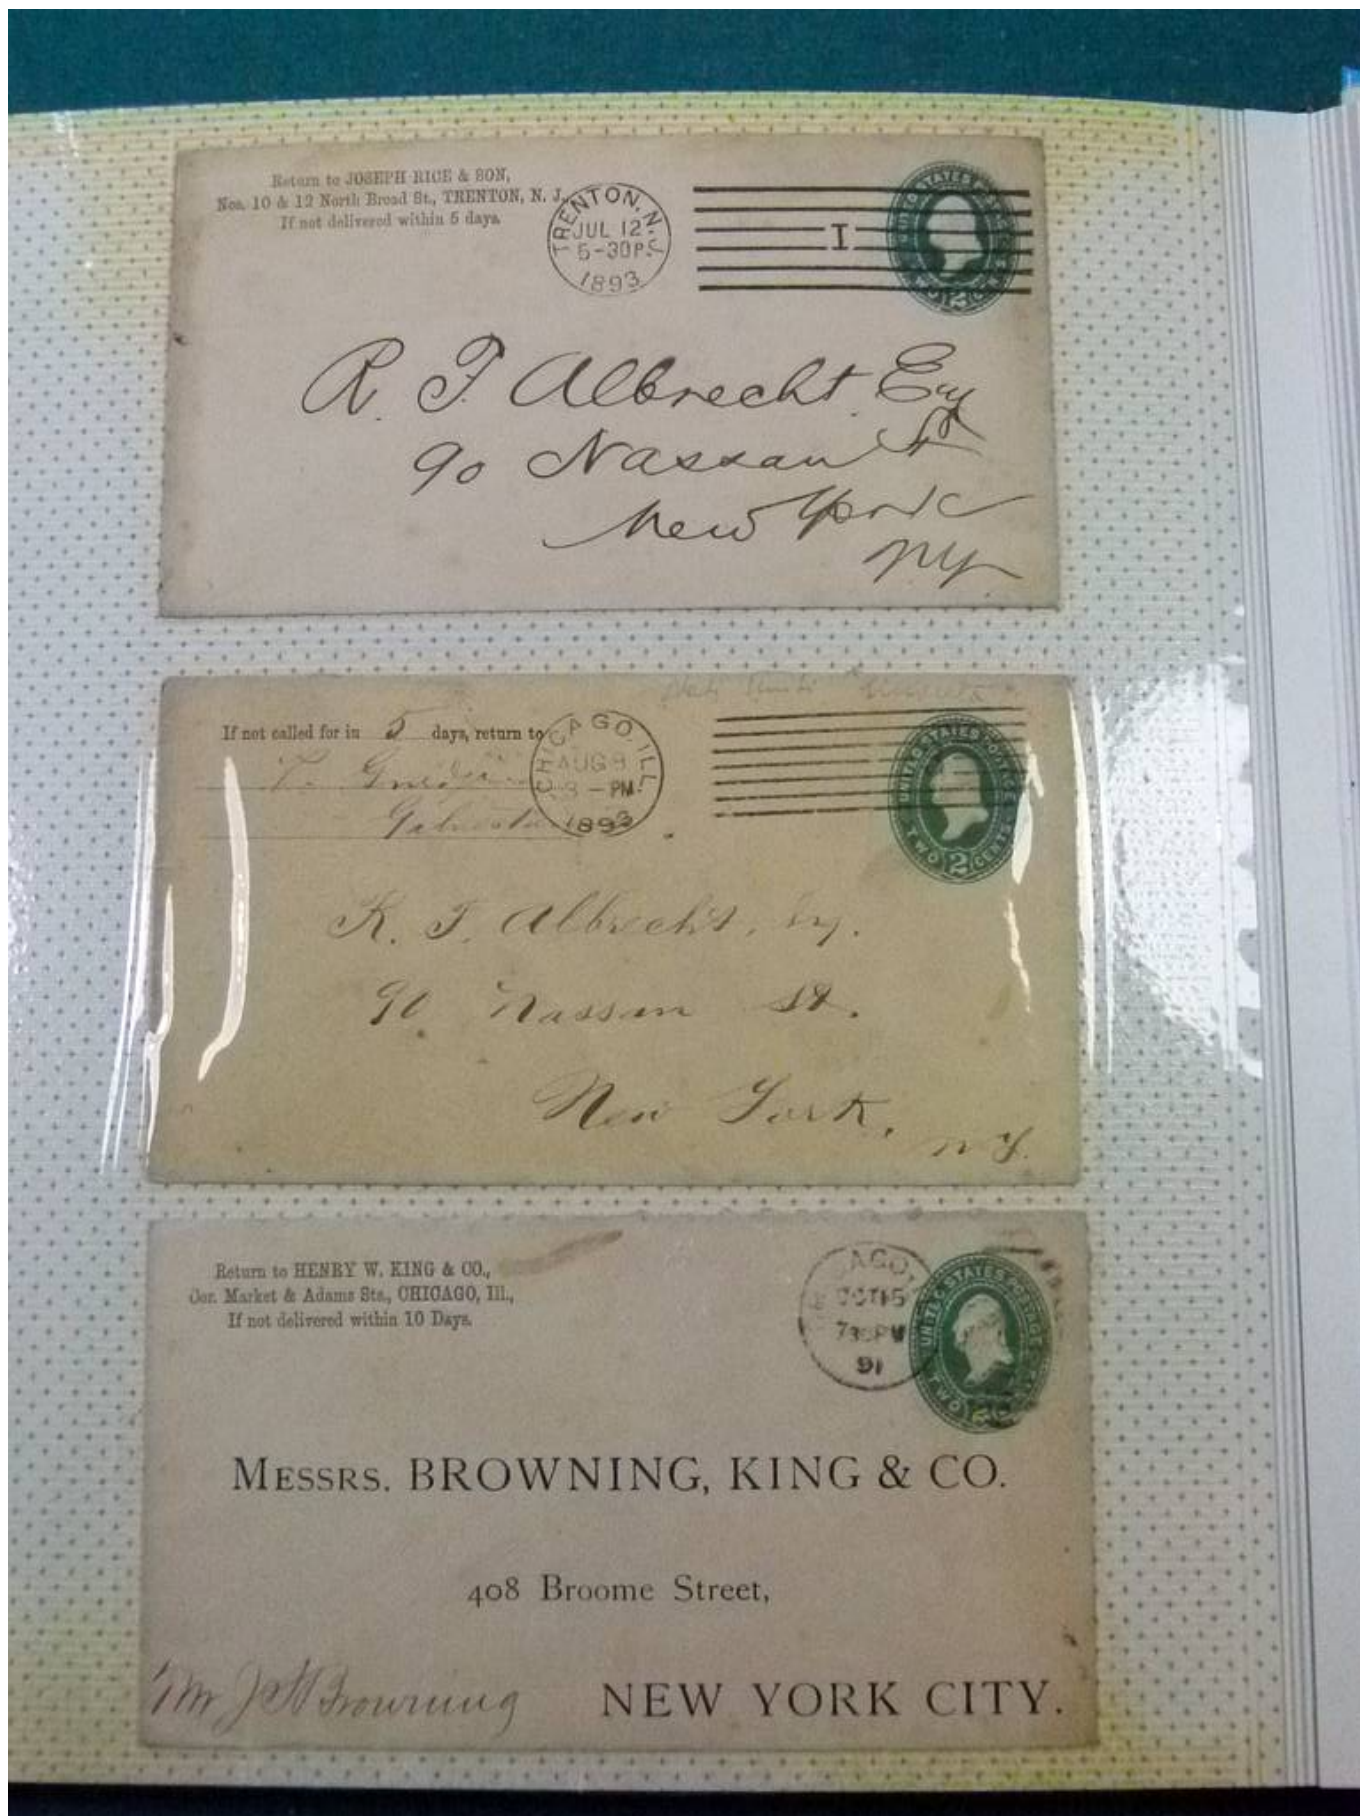 Return to JOSEPH RICE & SON,
Nos. 10 & 12 North Broad St., TRENTON, N. J.,
If not delivered within 5 days.
TRENTON, N.J.
JUL 12
5-30P
1893
I
UNITED STATES POSTAGE
TWO 2 CENTS
R. F. Albrecht Esq
90 Nassau St
New York
NY
If not called for in 5 days, return to
CHICAGO, ILL.
AUG
PM
1893
UNITED STATES POSTAGE
TWO 2 CENTS
R. F. Albrecht, Esq.
90 Nassau St.
New York,
N.Y.
Return to HENRY W. KING & CO.,
Cor. Market & Adams Sts., CHICAGO, Ill.,
If not delivered within 10 Days.
AGO,
OCT 15
730PM
91
UNITED STATES POSTAGE
TWO
MESSRS. BROWNING, KING & CO.
408 Broome Street,
NEW YORK CITY.
Mr J H Browning